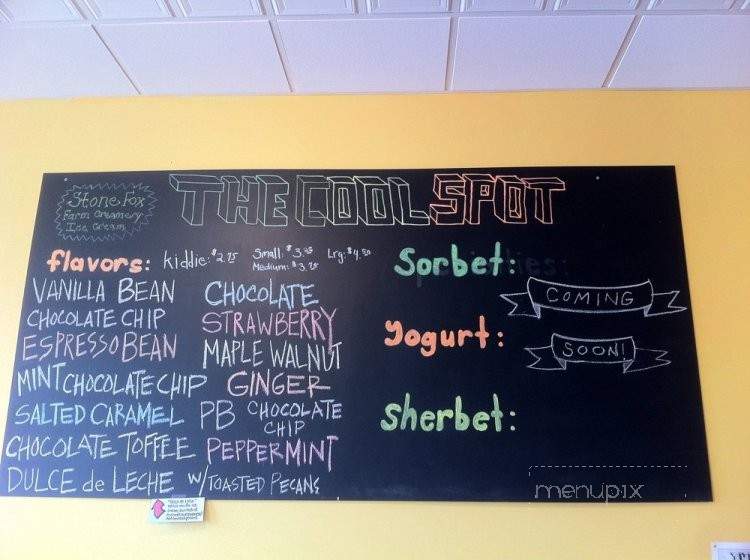 THE COOL SPOT
Stone Fox
Farm Creamery
Ice Cream
flavors: kiddie: $2.75 Small: Lrg:
Medium:
VANILLA BEAN CHOCOLATE
CHOCOLATE CHIP STRAWBERRY
ESPRESSO BEAN MAPLE WALNUT
MINT CHOCOLATE CHIP GINGER
SALTED CARAMEL PB CHOCOLATE
CHIP
CHOCOLATE TOFFEE PEPPERMINT
DULCE de LECHE W/TOASTED PECANS
Sorbet:
COMING
Yogurt:
SOON!
Sherbet:
menupix